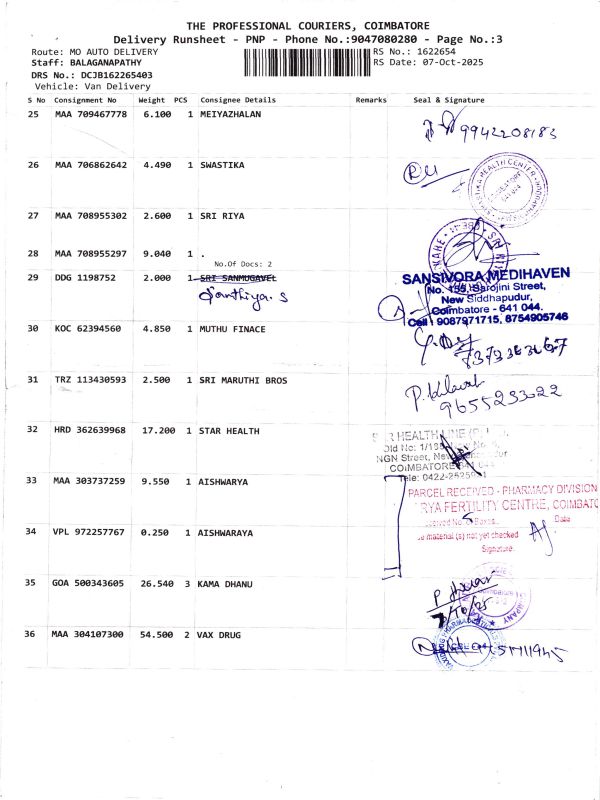 THE PROFESSIONAL COURIERS, COIMBATORE
Delivery Runsheet - PNP - Phone No.:9047080280 - Page No.:3
Route: MO AUTO DELIVERY RS No.: 1622654
Staff: BALAGANAPATHY RS Date: 07-Oct-2025
DRS No.: DCJB162265403
Vehicle: Van Delivery
S No Consignment No Weight PCS Consignee Details Remarks Seal & Signature
25 MAA 709467778 6.100 1 MEIYAZHALAN
9942208183
26 MAA 706862642 4.490 1 SWASTIKA
HEALTH CENTER
27 MAA 708955302 2.600 1 SRI RIYA
28 MAA 708955297 9.040 1 .
No.Of Docs: 2
29 DDG 1198752 2.000 1 SRI SANMUGAVEL
Santhiya. S
SANSIVORA MEDIHAVEN
No. 155, Sarojini Street,
New Siddhapudur,
Coimbatore - 641 044.
Cell : 9087971715, 8754905746
30 KOC 62394560 4.850 1 MUTHU FINACE
31 TRZ 113430593 2.500 1 SRI MARUTHI BROS
9655233022
32 HRD 362639968 17.200 1 STAR HEALTH
HEALTH LINE
Old No: 1/13
NGN Street, New
COIMBATORE 641 044
Tele: 0422-2525
33 MAA 303737259 9.550 1 AISHWARYA
PARCEL RECEIVED - PHARMACY DIVISION
RYA FERTILITY CENTRE, COIMBATO
No. of Boxes Date
material (s) not yet checked
Signature
34 VPL 972257767 0.250 1 AISHWARAYA
35 GOA 500343605 26.540 3 KAMA DHANU
7/10/25
36 MAA 304107300 54.500 2 VAX DRUG